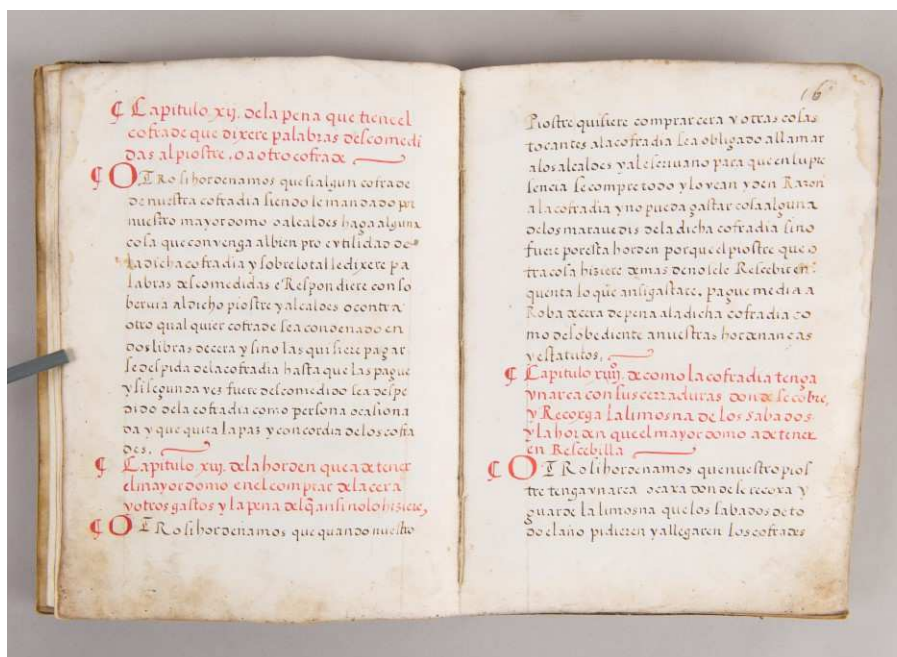 ¶ Capitulo xij. dela pena que tiene el
cofrade que dixere palabras descomedi
das al piostre, o a otro cofrade
¶ OTRosi hordenamos que si algun cofrade
de nuestra cofradia siendole mandado por
nuestro mayordomo o alcaldes haga alguna
cosa que convenga al bien pro e vtilidad de
la dicha cofradia y sobre lo tal le dixere pa
labras descomedidas e Respondiere con so
bervia al dicho piostre y alcaldes o contra
otro qual quier cofrade sea condenado en
dos libras de cera y si no las quisiere pagar
se despida dela cofradia hasta que las pague
y si segunda vez fuere descomedido sea despe
dido dela cofradia como persona ocasiona
da y que quita la paz y concordia delos cofra
des.
¶ Capitulo xiij. dela horden que a de tener
el mayordomo en el comprar dela cera
y otros gastos y la pena del q̃ ansi no lo hiziere,
¶ OTRosi hordenamos que quando nuestro
16
Piostre quisiere comprar cera y otras cosas
tocantes ala cofradia sea obligado a llamar
alos alcaldes y al escrivano para que en su pre
sencia se compre todo y lo vean y den Razon
a la cofradia y no pueda gastar cosa alguna
delos maravedis dela dicha cofradia sino
fuere por esta horden porque el piostre que o
tra cosa hiziere demas de no le Rescebir en
quenta lo que ansi gastare, pague media a
Roba de cera de pena ala dicha cofradia co
mo desobediente a nuestras hordenancas
y estatutos.
¶ Capitulo xiiij. de como la cofradia tenga
vn arca con sus cerraduras donde se cobre,
y Recorga la limosna de los sabados
y la horden que el mayordomo a de tener
en Rescebilla
¶ OTRosi hordenamos que nuestro pios
tre tenga vn arca o caxa donde se recoxa y
guarde la limosna que los sabados de to
do el año pidieren y allegaren los cofrades